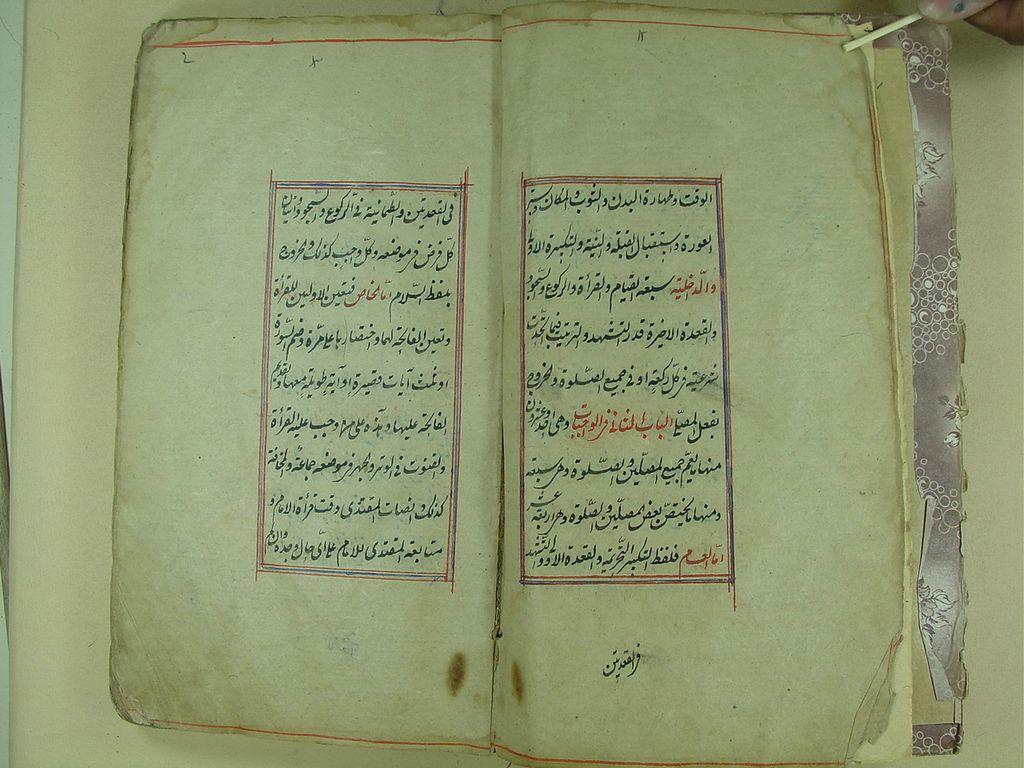 الوقت وطهارة البدن والثوب والمكان وستر
العورة واستقبال القبلة والنية والتكبيرة الاولى
والداخلية سبعة القيام والقراة والركوع والسجود
والقعدة الاخيرة قدر التشهد والترتيب فيما اتحدت
شرعيته فى كل ركعة او فى جميع الصلوة والخروج
بفعل المصلى الباب الثانى فى الواجبات وهى احد وعشرون
منها ما يعم جميع المصلين والصلوة وهى سبعة
ومنها ما يختص بعض المصلين والصلوة وهى اربعة عشر
اما العام فلفظ التكبير التحريمة والقعدة الاولى والتشهد
فى القعدتين
فى القعدتين والطمانية فى الركوع والسجود واتيان
كل فرض فى موضعه وكل واجب كذلك والخروج
بلفظ السلام اما الخاص فتعين الاوليين للقراة
وتعين الفاتحة لهما واختصارها على مرة وضم السورة
او ثلث آيات قصيرة او آية طويلة معها وتقديم
الفاتحة عليها وهذه على من وجب عليه القراة
والقنوت فى الوتر والجهر فى موضعه جماعة والمخافتة
كذلك وانصات المقتدى وقت قراة الامام و
متابعة المقتدى للامام على اى حال وجده وان لم